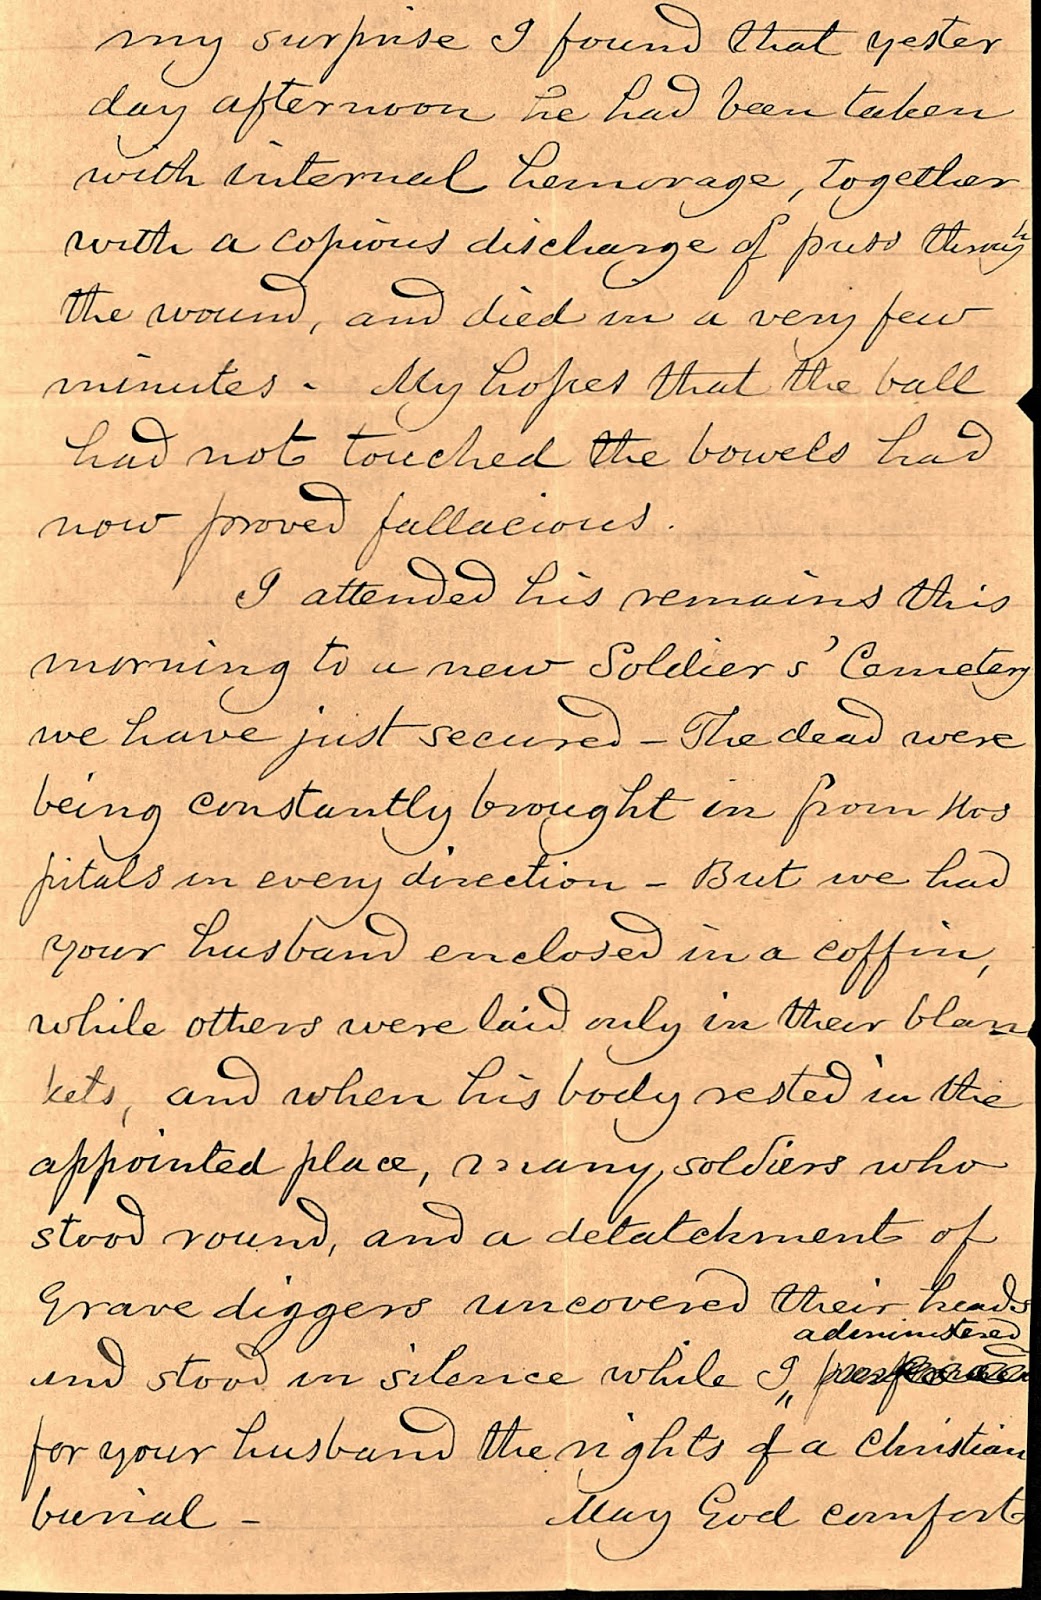 my surprise I found that yester
day afternoon he had been taken
with internal hemorage, together
with a copious discharge of puss through
the wound, and died in a very few
minutes - My hopes that the ball
had not touched the bowels had
now proved fallacious.
I attended his remains this
morning to a new Soldiers' Cemetery
we have just secured - The dead were
being constantly brought in from Hos
pitals in every direction - But we had
your husband enclosed in a coffin,
while others were laid only in their blan
kets, and when his body rested in the
appointed place, many soldiers who
stood round, and a detatchment of
Grave diggers uncovered their heads
administered
and stood in silence while I " performed
for your husband the rights of a Christian
burial - May God comfort